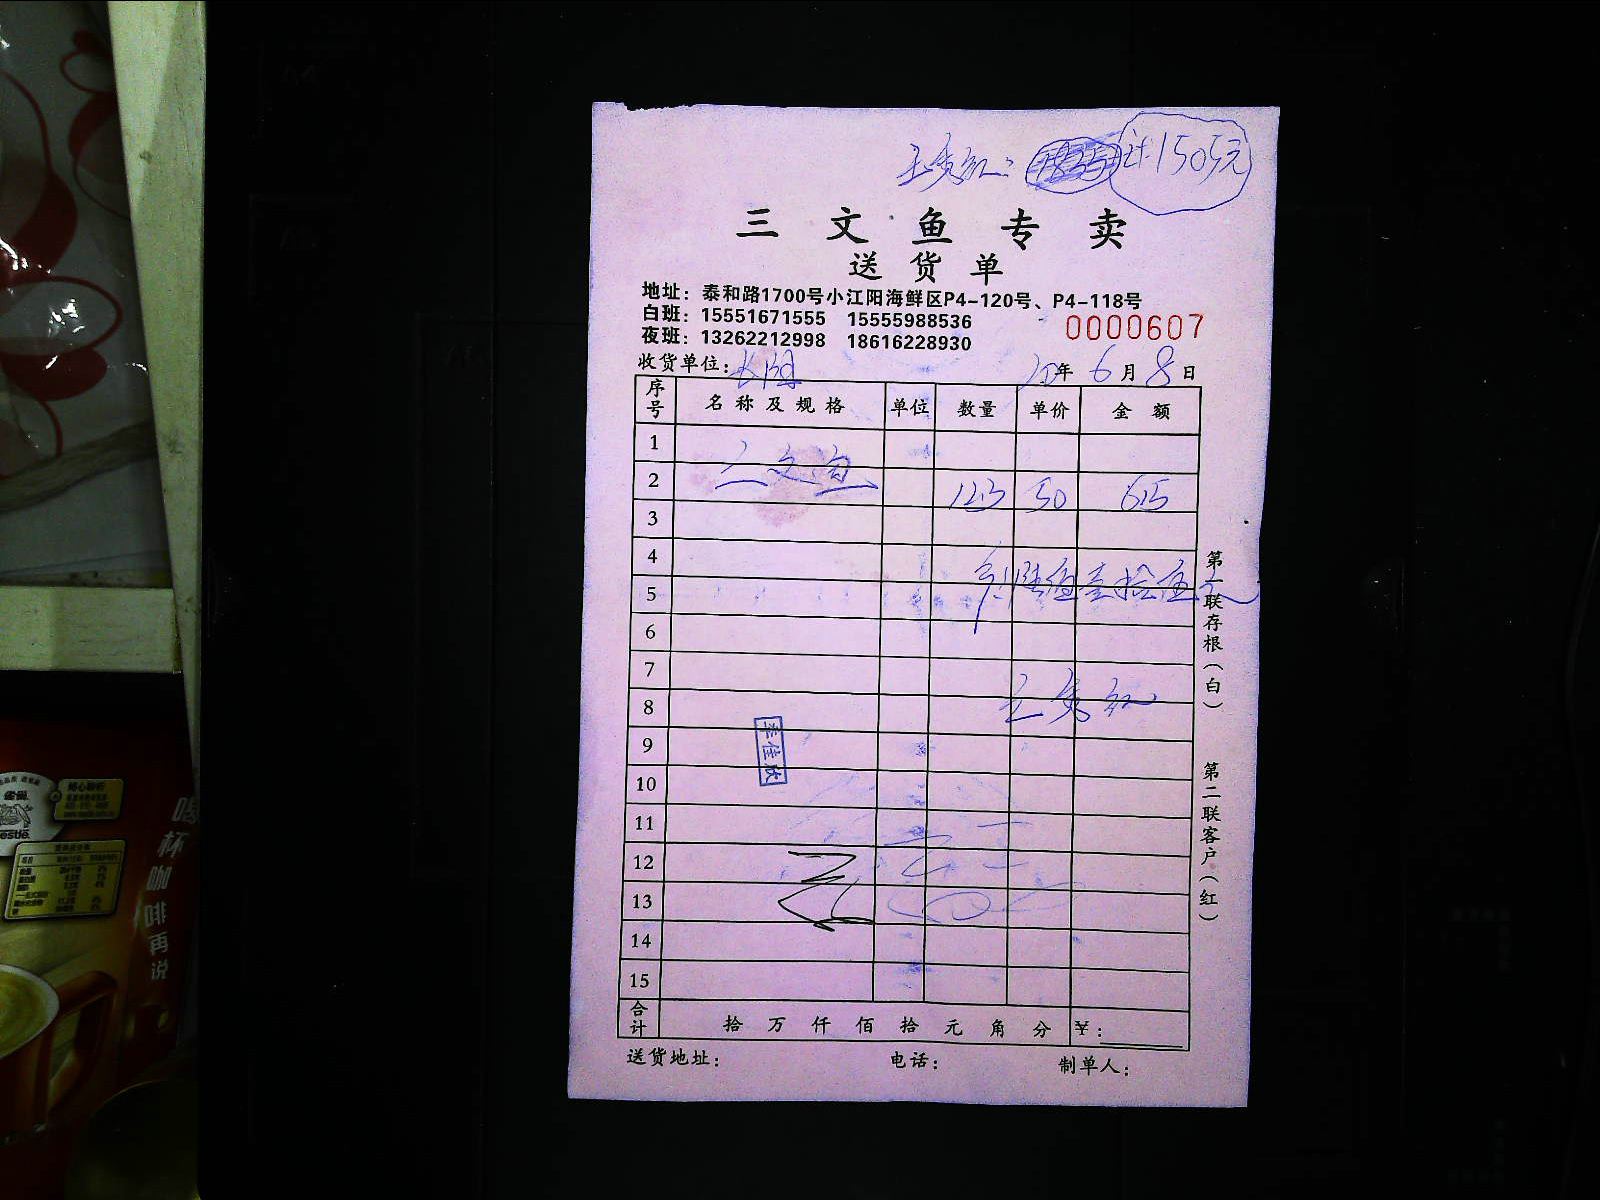 计1505元
三文鱼专卖
送货单
地址：泰和路1700号小江阳海鲜区P4-120号、P4-118号
白班：15551671555 15555988536
夜班：13262212998 18616228930
0000607
收货单位：长阳 20年6月8日
序号 名称及规格 单位 数量 单价 金额
1
2 三文鱼 12.3 50 615
3
4
计陆佰壹拾伍元
5
6
7
8
李佳欣
9
10
11
12
13
14
15
合计 拾 万 仟 佰 拾 元 角 分 ¥：
送货地址： 电话： 制单人：
第一联存根（白）
第二联客户（红）
喝杯咖啡再说